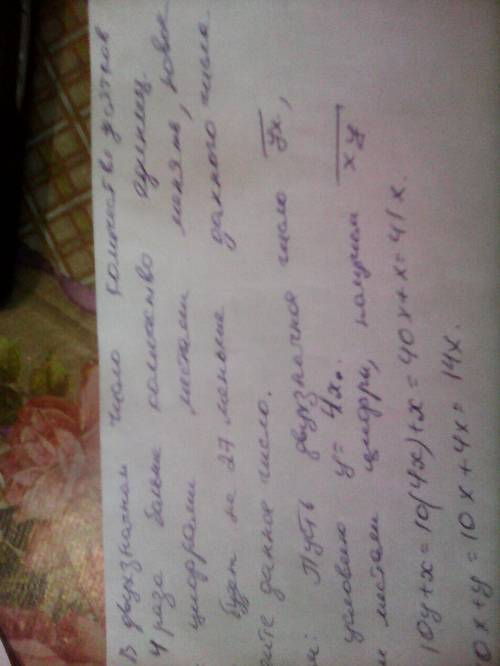 В двузначном число количество десятков
4 раза больше количество единиц.
цифрами местами менять, новое
будет на 27 меньше данного числа.
ите данное число.
м: Пусть двузначное число yx,
условию y = 4x.
и местами цифри, получаем xy
10y+x = 10(4x)+x = 40x+x = 41x.
0x+y = 10x+4x = 14x.